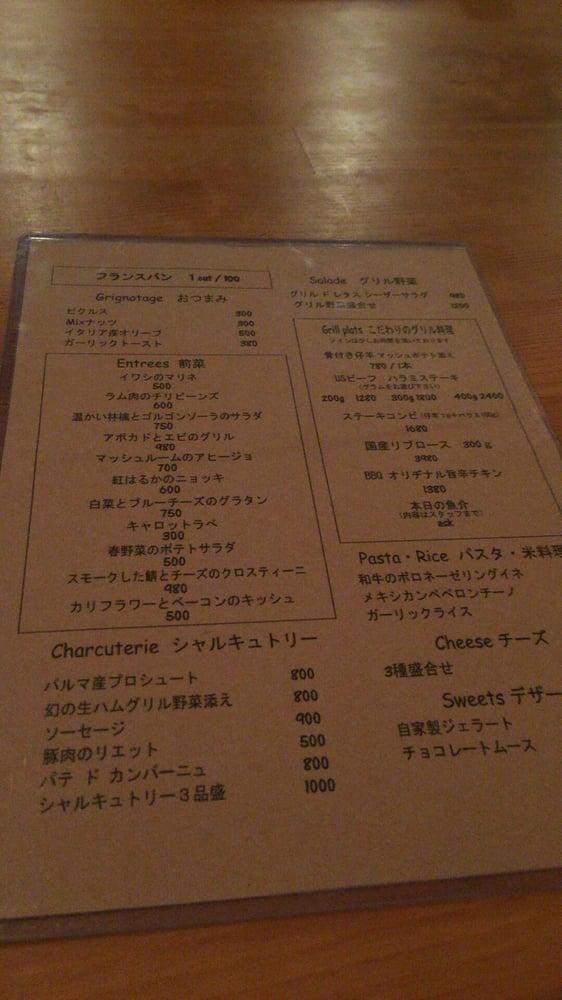 フランスパン 1 cut / 100
Grignotage おつまみ
ピクルス 300
Mixナッツ 300
イタリア産オリーブ 500
ガーリックトースト 380
Entrees 前菜
イワシのマリネ
500
ラム肉のチリビーンズ
600
温かい林檎とゴルゴンゾーラのサラダ
750
アボカドとエビのグリル
980
マッシュルームのアヒージョ
700
紅はるかのニョッキ
600
白菜とブルーチーズのグラタン
750
キャロットラペ
300
春野菜のポテトサラダ
500
スモークした鯖とチーズのクロスティーニ
980
カリフラワーとベーコンのキッシュ
500
Charcuterie シャルキュトリー
パルマ産プロシュート 800
幻の生ハムグリル野菜添え 800
ソーセージ 900
豚肉のリエット 500
パテ ド カンパーニュ 800
シャルキュトリー３品盛 1000
Salade グリル野菜
グリル ド レタス シーザーサラダ 980
グリル野菜盛合せ 1200
Grill plats こだわりのグリル料理
メインは少しお時間を頂いております
骨付き仔羊 マッシュポテト添え
780 / 1本
USビーフ ハラミステーキ
(グラムをお選び下さい)
200g 1280 300g 1800 400g 2400
ステーキコンビ
1680
国産リブロース 300ｇ
3980
BBQ オリヂナル旨辛チキン
1380
本日の魚介
(内容はスタッフまで)
ask
Pasta・Rice パスタ・米料理
和牛のボロネーゼリングイネ
メキシカンペペロンチーノ
ガーリックライス
Cheese チーズ
3種盛合せ
Sweets デザー
自家製ジェラート
チョコレートムース